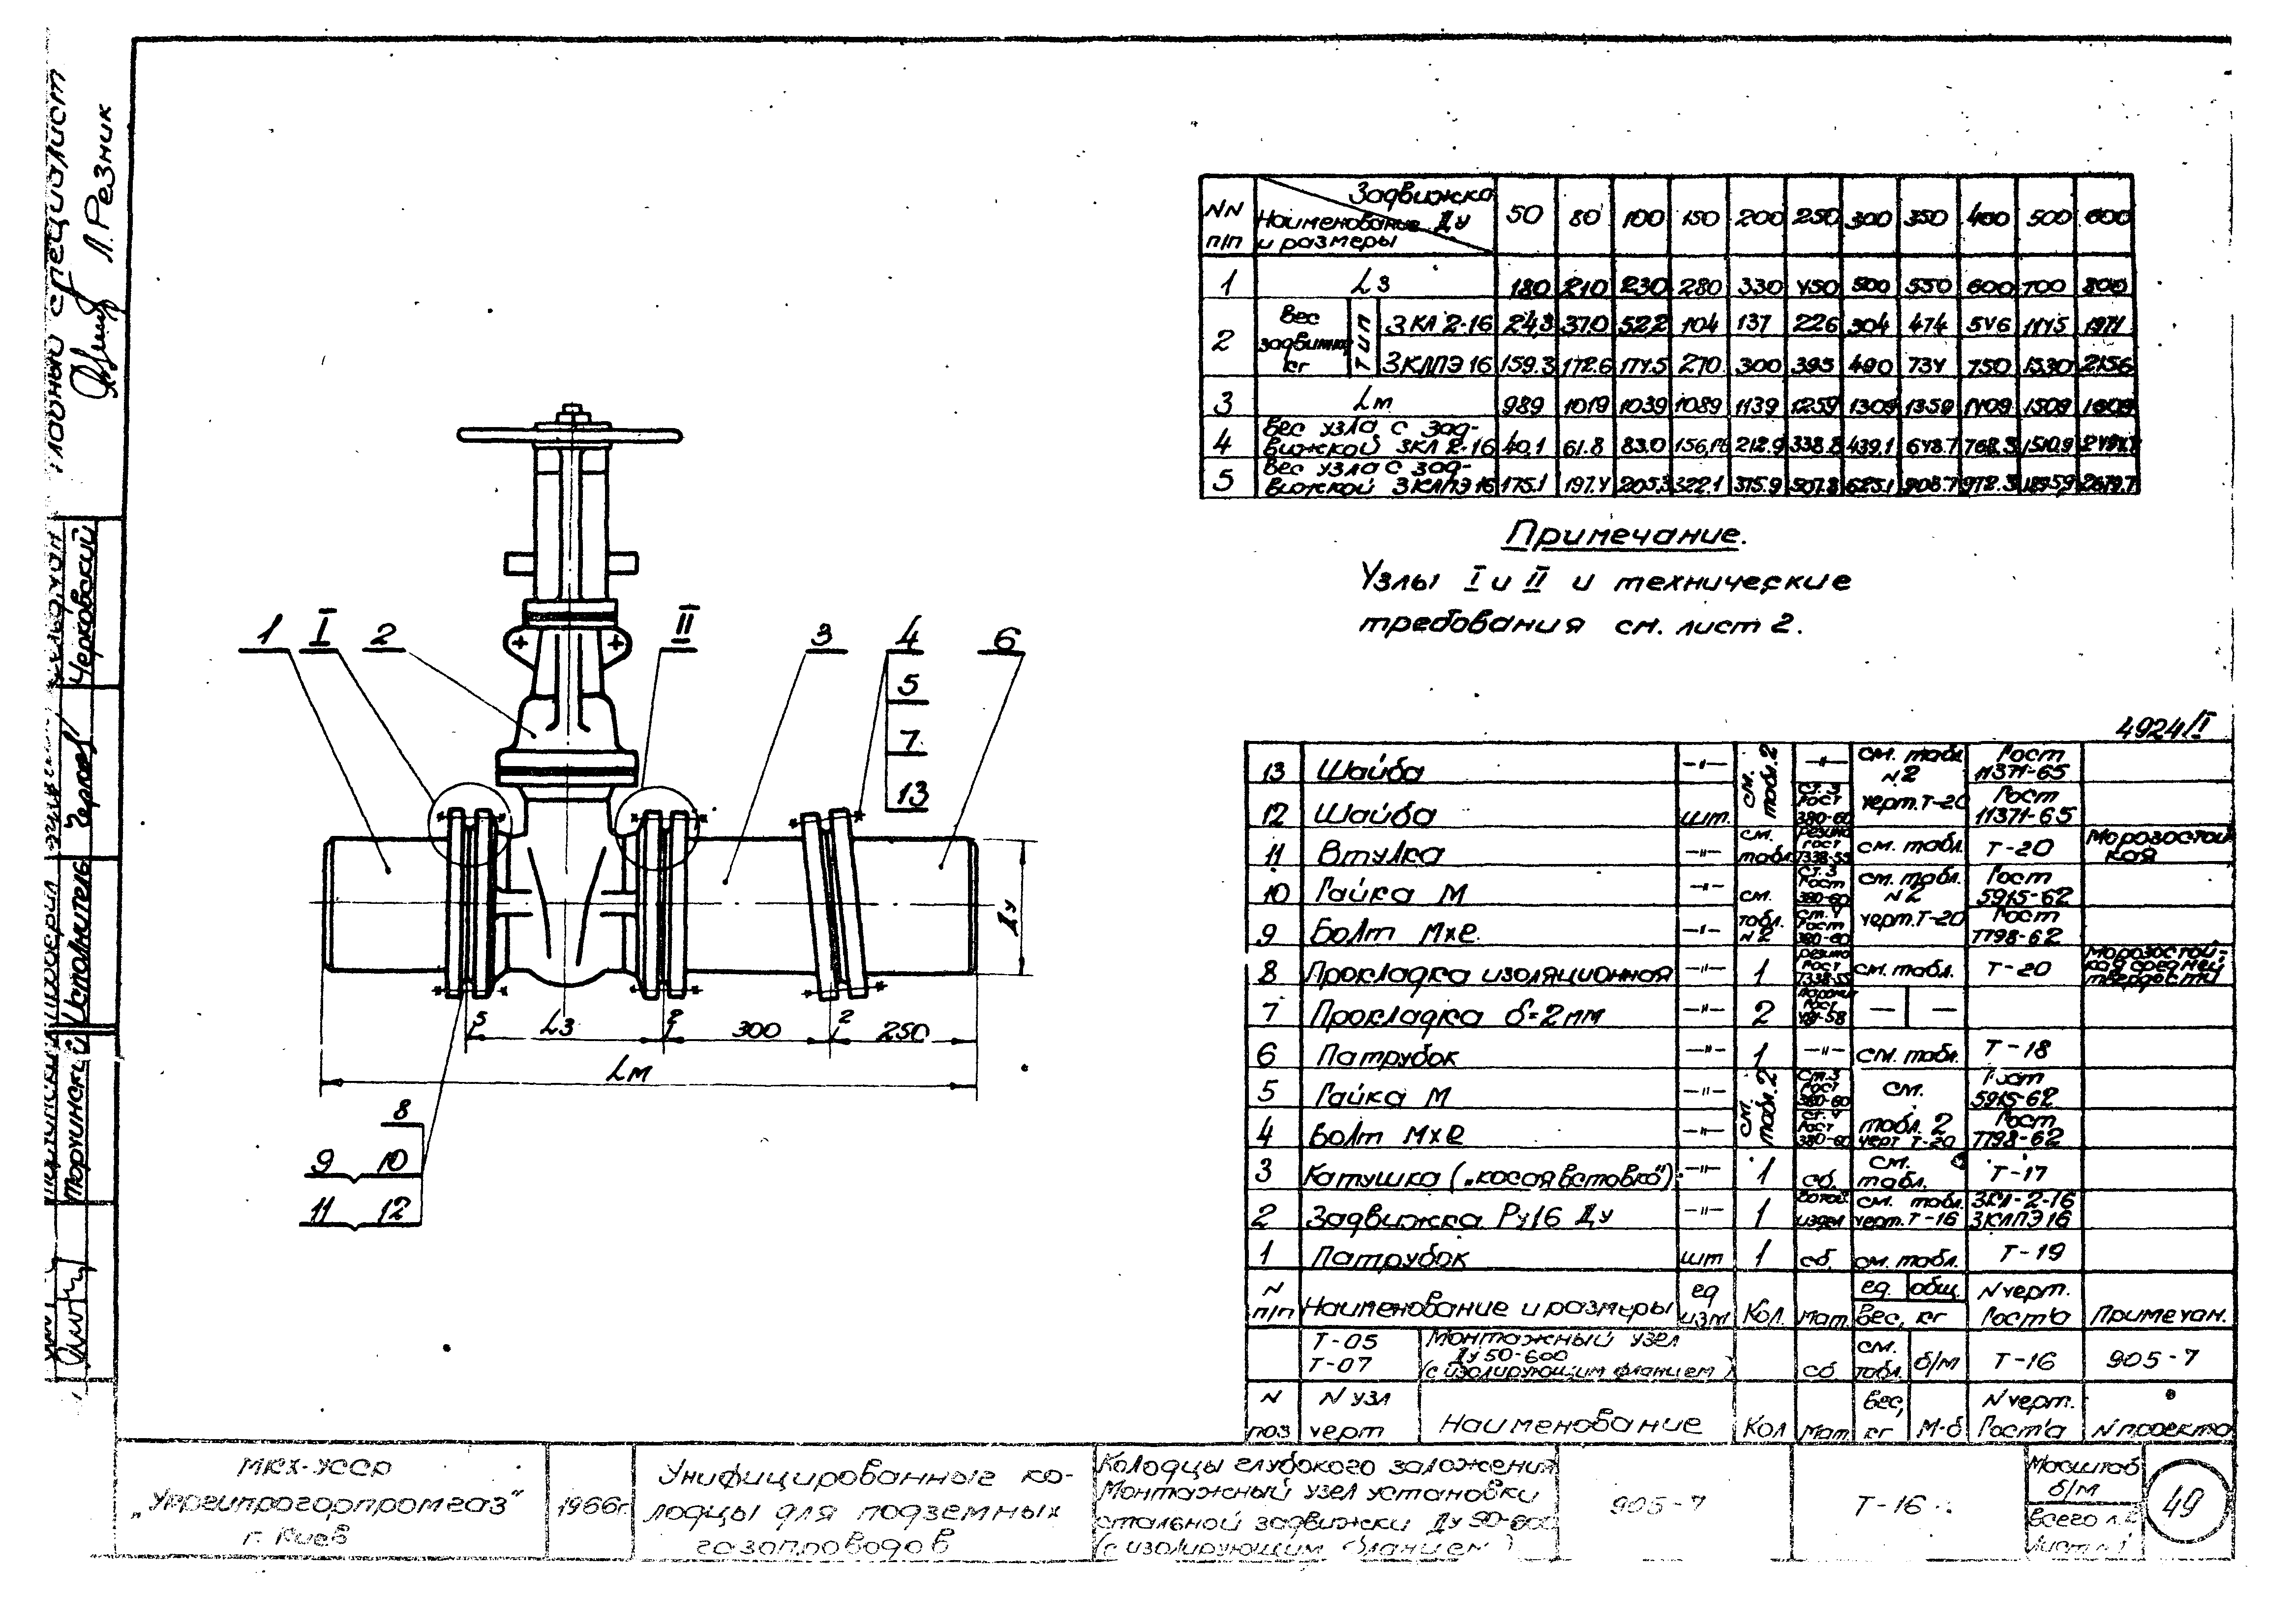 Главный специалист
Л. Резник
Черковский
Исполнитель
NN п/п
Задвижка Ду
Наименование и размеры
50 80 100 150 200 250 300 350 400 500 600
1 Lз 180 210 230 280 330 450 500 550 600 700 800
2 Вес задвижки кг Тип ЗКЛ 2-16 24,3 37.0 52.2 104 137 226 304 474 546 1145 1971
ЗКЛПЭ 16 159.3 172.6 174.5 270 300 395 490 734 750 1530 2156
3 Lм 989 1019 1039 1089 1139 1259 1309 1359 1409 1509 1609
4 Вес узла с зад-
вижкой ЗКЛ 2-16 40,1 61.8 83.0 212.9 338.8 439.1 648.7 768.3 1510.9
5 Вес узла с зад-
вижкой ЗКЛПЭ 16 175.1 197.4 205.3 322.1 375.9 507.8 625.1 908.7 972.3 1895.9 2679.7
Примечание.
Узлы I и II и технические
требования см. лист 2.
1 I 2 II 3 4 6
5
7
13
Ду
5 Lз 2 300 2 250
Lм
8
9 10
11 12
4924/I
13 Шайба —"— см. табл. 2 —"— см. табл. N2 Гост 11371-65
12 Шайба шт. Ст. 3 Гост 380-60 черт. Т-20 Гост 11371-65
11 Втулка —"— см. табл. Резина Гост 7338-55 см. табл. Т-20 Морозостойкая
10 Гайка М —"— см. табл. N2 Ст. 3 Гост 380-60 см. табл. N2 Гост 5915-62
9 Болт Мхе —"— Ст. 4 Гост 380-60 черт. Т-20 Гост 7798-62
8 Прокладка изоляционная —"— 1 Резина Гост 7338-55 см. табл. Т-20 Морозостойкая средней твердости
7 Прокладка δ=2мм —"— 2 Гост — —
6 Патрубок —"— 1 —"— см. табл. Т-18
5 Гайка М —"— см. табл. 2 Ст. 3 Гост 380-60 см. Гост 5915-62
4 Болт Мхе —"— Ст. 4 Гост 380-60 табл. 2 черт Т-20 Гост 7798-62
3 Катушка („косая вставка") —"— 1 сб. см. табл. Т-17
2 Задвижка Ру16 Ду —"— 1 издел см. табл. черт. Т-16 ЗКЛ-2-16 ЗКЛПЭ16
1 Патрубок шт 1 сб. см. табл. Т-19
N п/п Наименование и размеры ед изм Кол. Мат. ед. общ. Вес, кг N черт. Госта Примечан.
Т-05 Т-07 Монтажный узел Ду 50-600 (с изолирующим фланцем) сб. см. табл. б/м Т-16 905-7
N поз N узл черт Наименование Кол Мат. Вес, кг М-б N черт. Гост'а N проекта
МКХ-УССР
„Укргипрогорпромгаз"
г. Киев
1966г.
Унифицированные ко-
лодцы для подземных
газопроводов
Колодцы глубокого заложения
Монтажный узел установки
стальной задвижки Ду 50-600
(с изолирующим фланцем)
905-7
Т-16
Масштаб
б/м
Всего л. 2
Лист 1
49